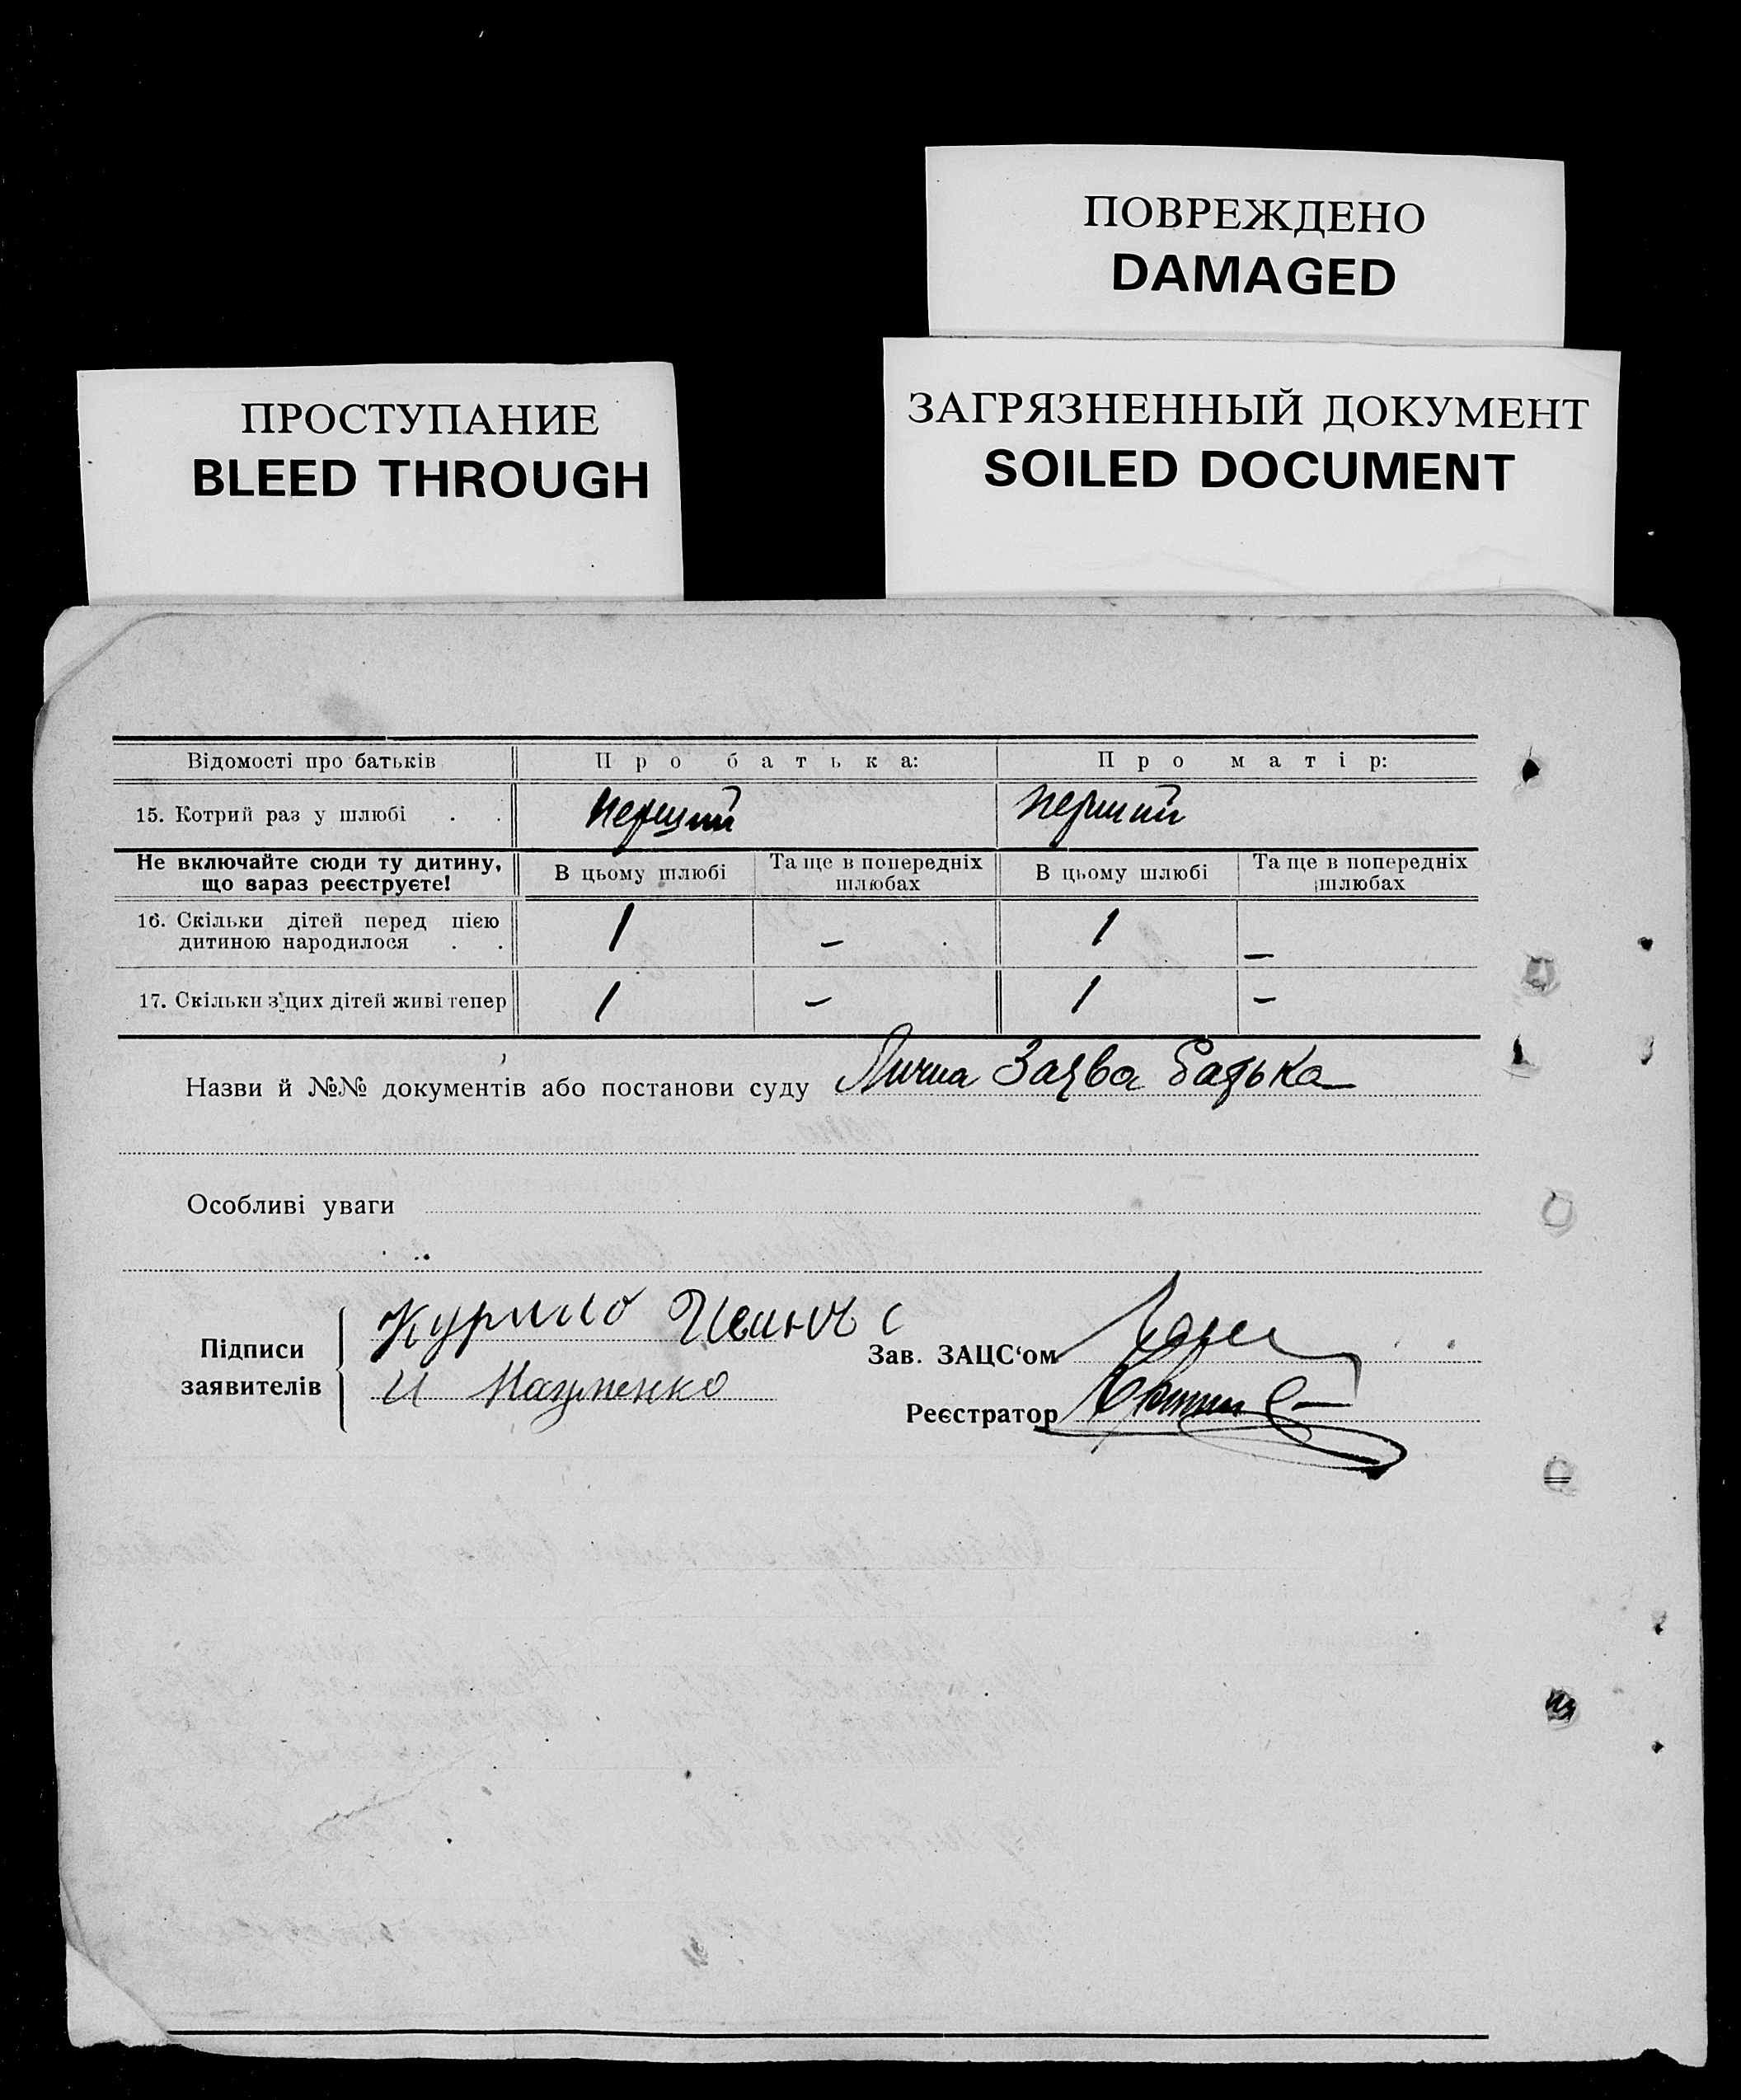 ПОВРЕЖДЕНО
DAMAGED
ПРОСТУПАНИЕ
BLEED THROUGH
ЗАГРЯЗНЕННЫЙ ДОКУМЕНТ
SOILED DOCUMENT
Відомості про батьків Про батька: Про матір:
15. Котрий раз у шлюбі . . перший перший
Не включайте сюди ту дитину, що зараз реєструєте! В цьому шлюбі Та ще в попередніх шлюбах В цьому шлюбі Та ще в попередніх шлюбах
16. Скільки дітей перед цією дитиною народилося . . 1 – 1 –
17. Скільки з цих дітей живі тепер 1 – 1 –
Назви й №№ документів або постанови суду Лична Заява Батька
Особливі уваги
Підписи заявителів
Курило
И Науменко
Зав. ЗАЦС'ом
Реєстратор